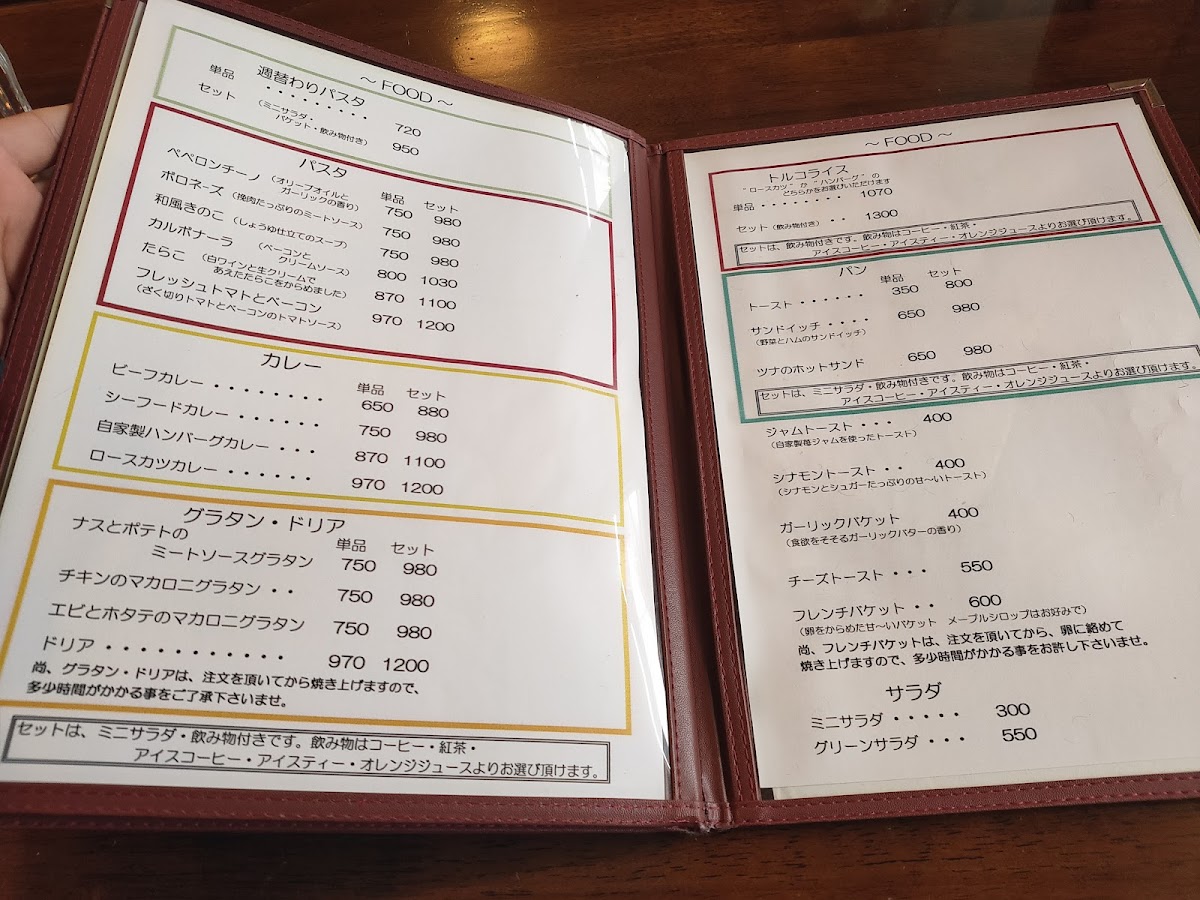 ～ FOOD ～
週替わりパスタ
単品 ・・・・・・・・ 720
セット (ミニサラダ・
バケット・飲み物付き) 950
パスタ
単品 セット
ペペロンチーノ (オリーブオイルと
ガーリックの香り) 750 980
ボロネーズ (挽肉たっぷりのミートソース) 750 980
和風きのこ (しょうゆ仕立てのスープ) 750 980
カルボナーラ (ベーコンと
クリームソース) 800 1030
たらこ (白ワインと生クリームで
あえたたらこをからめました) 870 1100
フレッシュトマトとベーコン 970 1200
(ざく切りトマトとベーコンのトマトソース)
カレー
単品 セット
ビーフカレー ・・・・・・・・・ 650 880
シーフードカレー ・・・・・・ 750 980
自家製ハンバーグカレー ・・・ 870 1100
ロースカツカレー ・・・・・・ 970 1200
グラタン・ドリア
単品 セット
ナスとポテトの
ミートソースグラタン 750 980
チキンのマカロニグラタン ・・ 750 980
エビとホタテのマカロニグラタン 750 980
ドリア ・・・・・・・・・・・・ 970 1200
尚、グラタン・ドリアは、注文を頂いてから焼き上げますので、
多少時間がかかる事をご了承下さいませ。
セットは、ミニサラダ・飲み物付きです。飲み物はコーヒー・紅茶・
アイスコーヒー・アイスティー・オレンジジュースよりお選び頂けます。
～ FOOD ～
トルコライス
"ロースカツ" か "ハンバーグ" の
どちらかをお選びいただけます
単品 ・・・・・・・・ 1070
セット (飲み物付き) ・・ 1300
セットは、飲み物付きです。飲み物はコーヒー・紅茶・
アイスコーヒー・アイスティー・オレンジジュースよりお選び頂けます。
パン
単品 セット
トースト ・・・・・・・ 350 800
サンドイッチ ・・・・ 650 980
(野菜とハムのサンドイッチ)
ツナのホットサンド 650 980
セットは、ミニサラダ・飲み物付きです。飲み物はコーヒー・紅茶・
アイスコーヒー・アイスティー・オレンジジュースよりお選び頂けます。
ジャムトースト ・・・ 400
(自家製苺ジャムを使ったトースト)
シナモントースト ・・ 400
(シナモンとシュガーたっぷりの甘～いトースト)
ガーリックバケット 400
(食欲をそそるガーリックバターの香り)
チーズトースト ・・・ 550
フレンチバケット ・・ 600
(卵をからめた甘～いバケット メープルシロップはお好みで)
尚、フレンチバケットは、注文を頂いてから、卵に絡めて
焼き上げますので、多少時間がかかる事をお許し下さいませ。
サラダ
ミニサラダ ・・・・・ 300
グリーンサラダ ・・・ 550